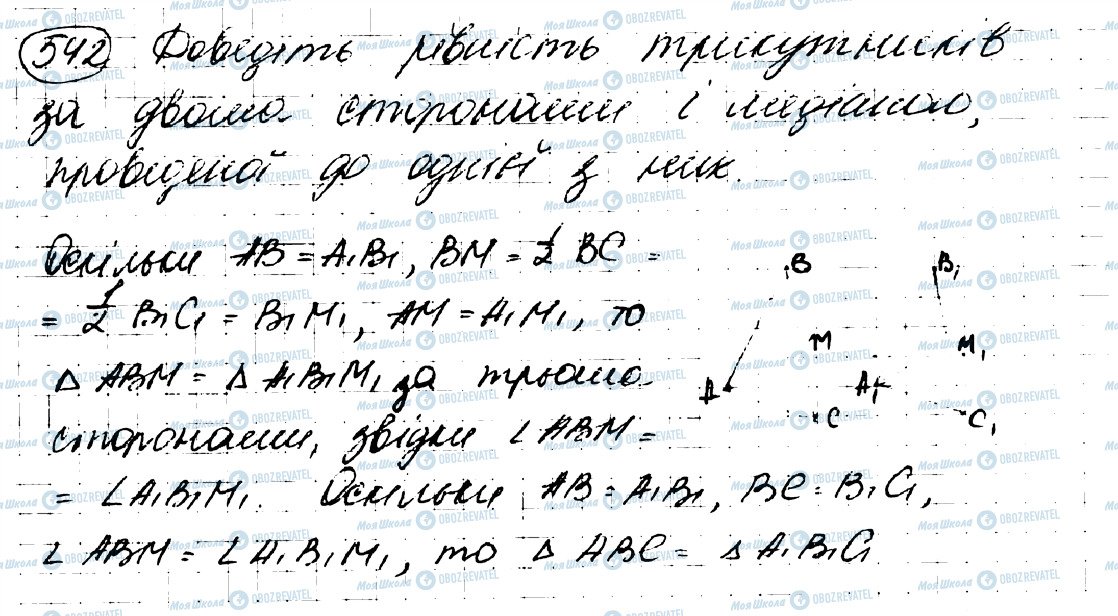 542 Доведіть рівність трикутників
за двома сторонами і медіаною,
проведеної до однієї з них.
Оскільки AB = A₁B₁, BM = 1/2 BC =
= 1/2 B₁C₁ = B₁M₁, AM = A₁M₁, то
△ ABM = △ A₁B₁M₁ за трьома
сторонами, звідки ∠ ABM =
= ∠ A₁B₁M₁. Оскільки AB = A₁B₁, BC = B₁C₁,
∠ ABM = ∠ A₁B₁M₁, то △ ABC = △ A₁B₁C₁
B B₁
M M₁
A A₁
C C₁
Моя Школа OBOZREVATEL